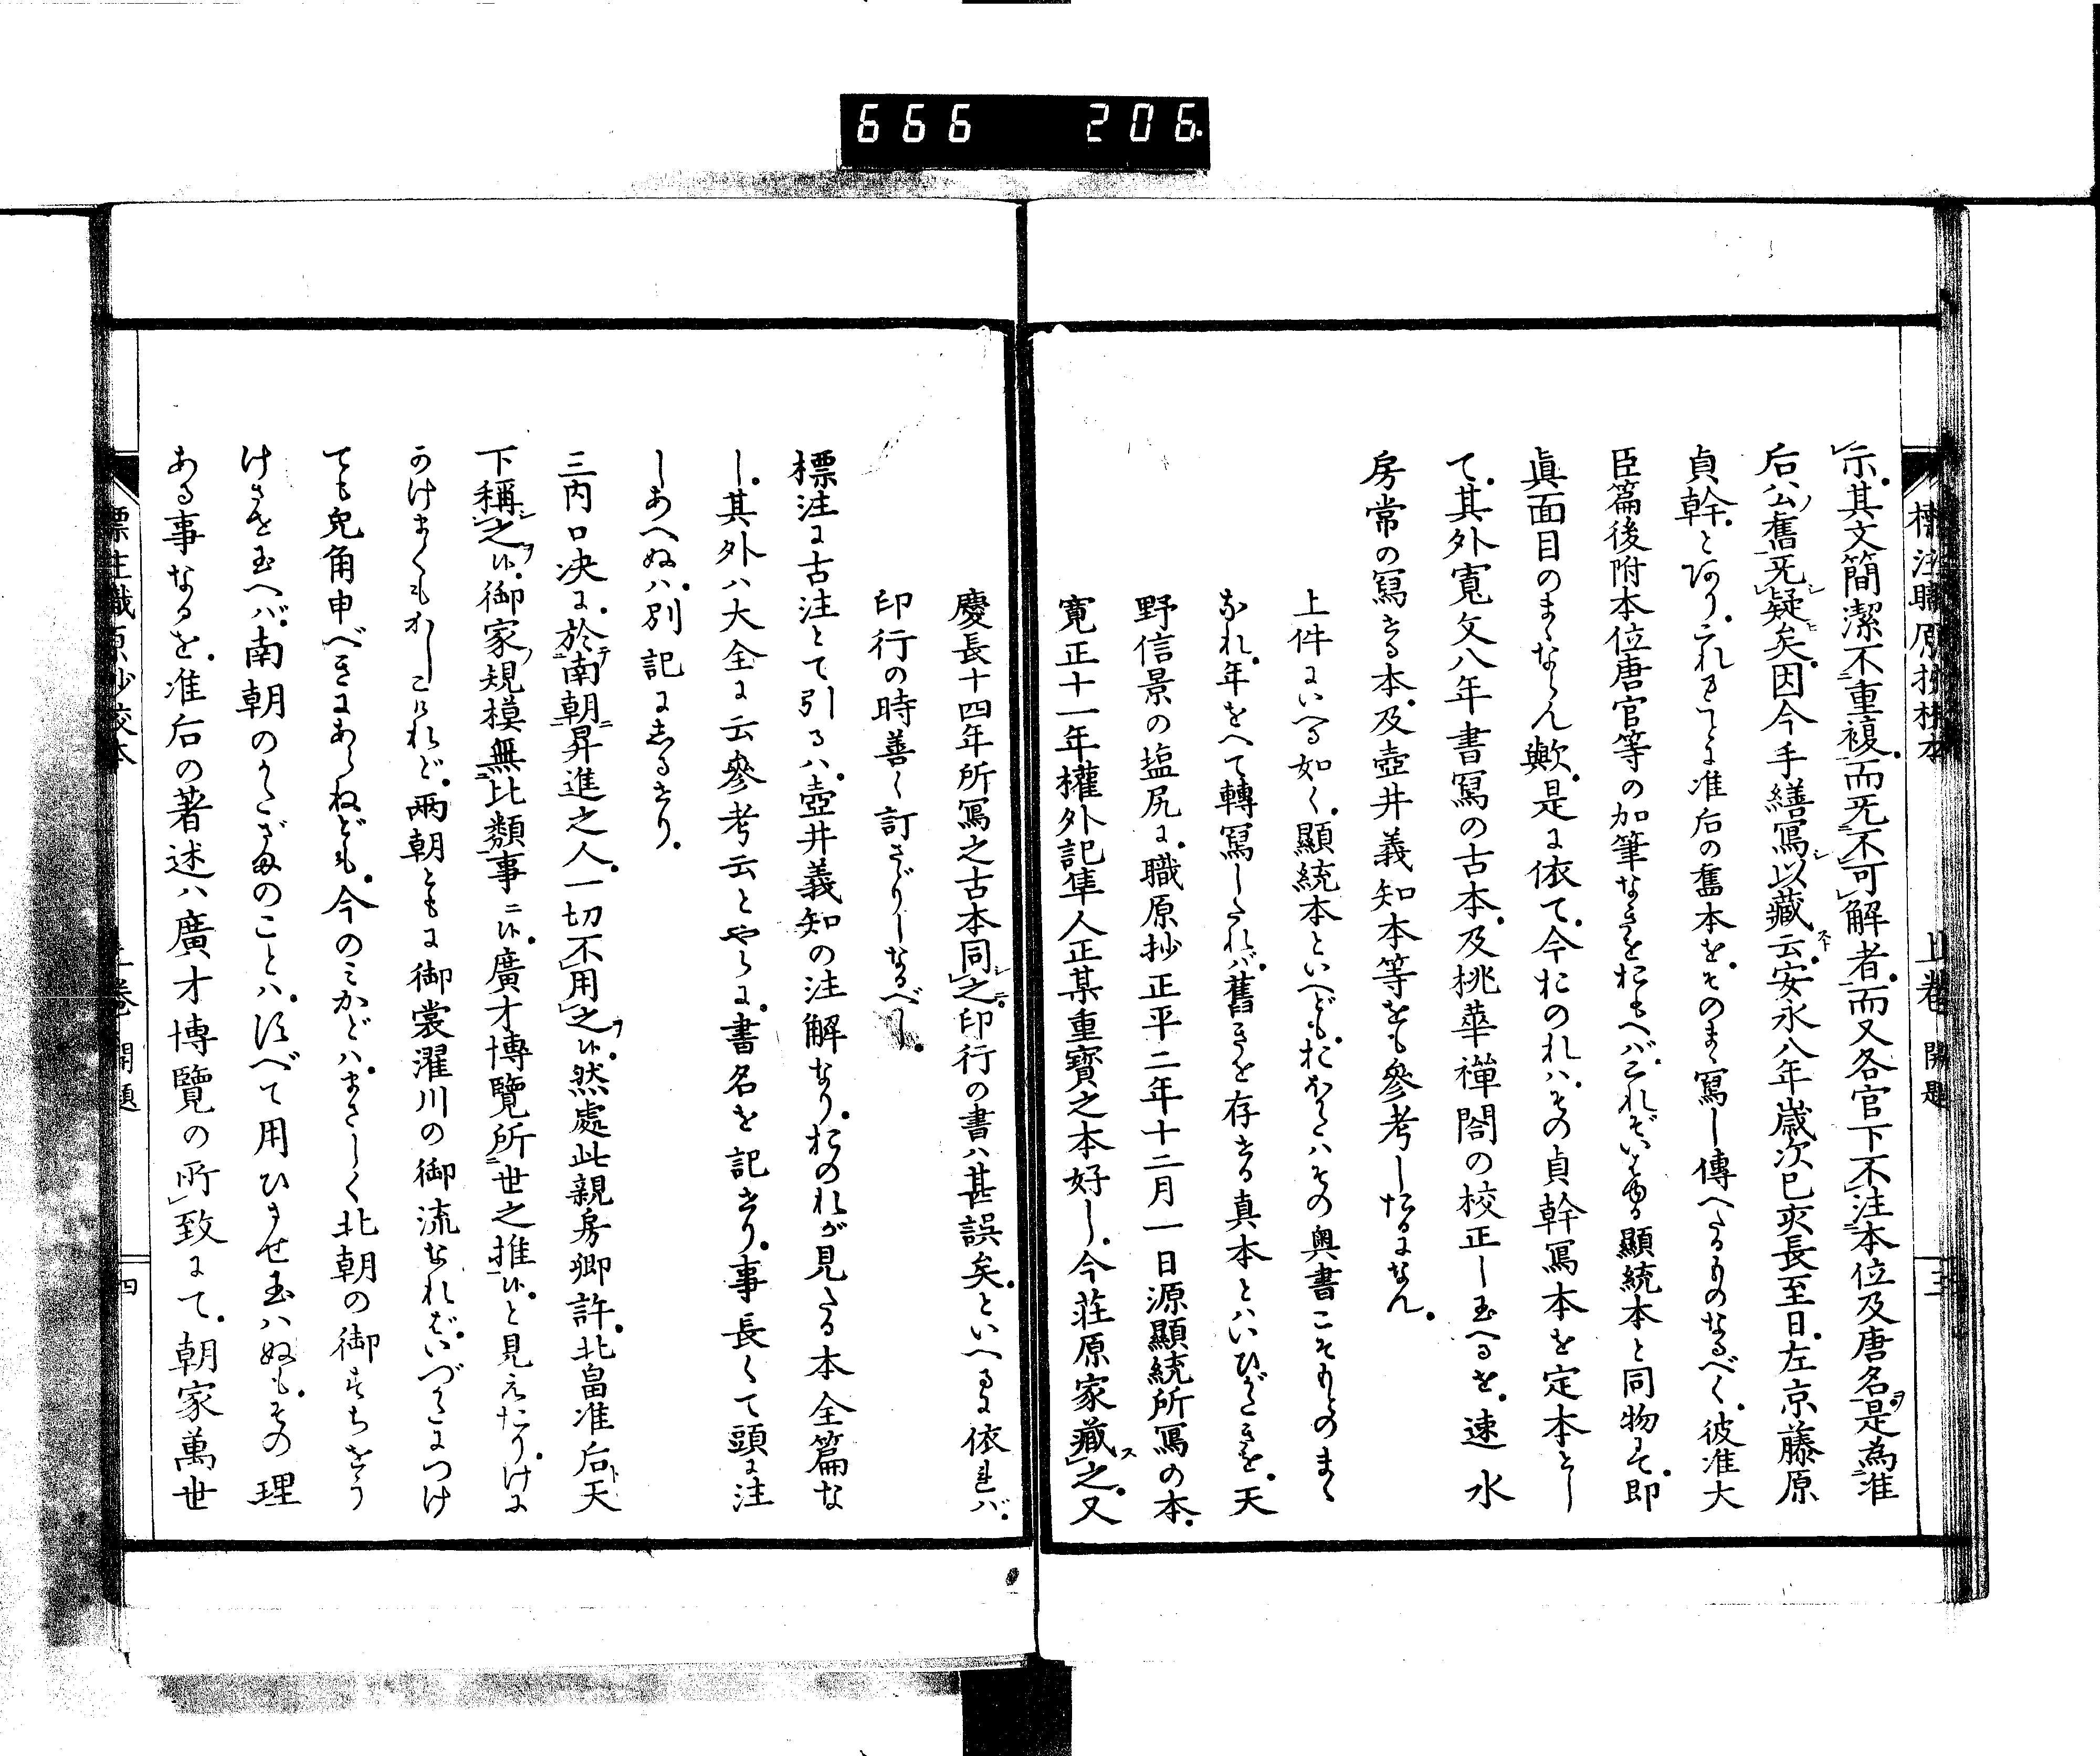 666 206
標注職原抄校本 上巻 開題 三
示。其文簡潔不重複。而旡不可解者。而又各官下不注本位及唐名。是為准
后公舊旡疑矣。因今手繕寫以藏云。安永八年歳次己亥長至日。左京藤原
貞幹。とあり。これまさに准后の舊本を。そのまゝ寫し傳へたるものなるべく。彼准大
臣篇後附本位唐官等の加筆なきをおもへバ。これぞいはゆる顯統本と同物にて。即
眞面目のまゝならん歟。是に依て。今おのれハ。その貞幹寫本を定本とし
て。其外寛文八年書寫の古本。及桃華禪閤の校正し玉へるを。速水
房常の寫せる本。及壺井義知本等をも參考したるになん。
上件にいへる如く。顯統本といへども。おほかたハその奥書こそもとのまゝ
なれ。年をへて轉寫したれバ。舊きを存せる真本とハいひがたきを。天
野信景の塩尻に。職原抄正平二年十二月一日源顯統所寫の本。
寛正十一年權外記隼人正某重寶之本好し。今荘原家藏之。又
慶長十四年所寫之古本同之。印行の書ハ甚誤矣。といへるに依れバ。
印行の時善く訂さゞりしなるべし。
標注に古注とて引るハ。壺井義知の注解なり。おのれが見たる本全篇な
し。其外ハ大全に云參考云とやうに。書名を記せり。事長くて頭に注
しあへぬハ。別記にしるせり。
三内口决に。於南朝昇進之人。一切不用之候。然處此親房卿許。北畠准后ト天
下稱之候。御家規模無比類事ニ候。廣才博覽所世之推候。と見えたり。けに
かけまくもかしこけれど。兩朝ともに御裳濯川の御流なれバ。いづかたにつけ
ても皃角申べきにあらねども。今のみかどハ。まさしく北朝の御すぢをうう
けさせ玉へバ。南朝のかたざまのことハ。なべて用ひさせ玉ハぬも。その理
ある事なるを。准后の著述ハ廣才博覽の所致にて。朝家萬世
標注職原抄校本 上巻 開題 四